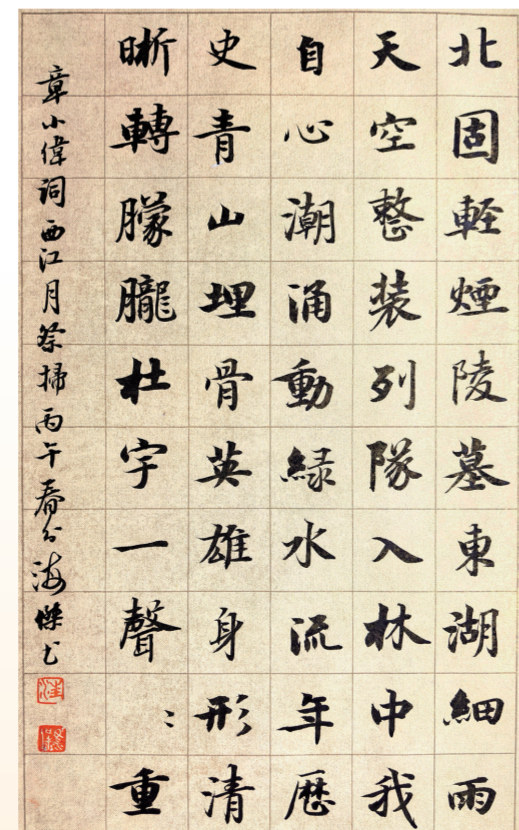 北固軽煙陵墓東湖細雨
天空整装列隊入林中我
自心潮涌動緑水流年歷
史青山埋骨英雄身形清
晰轉朦朧杜宇一聲〻重
章小偉詞西江月祭掃丙午春分海傑书